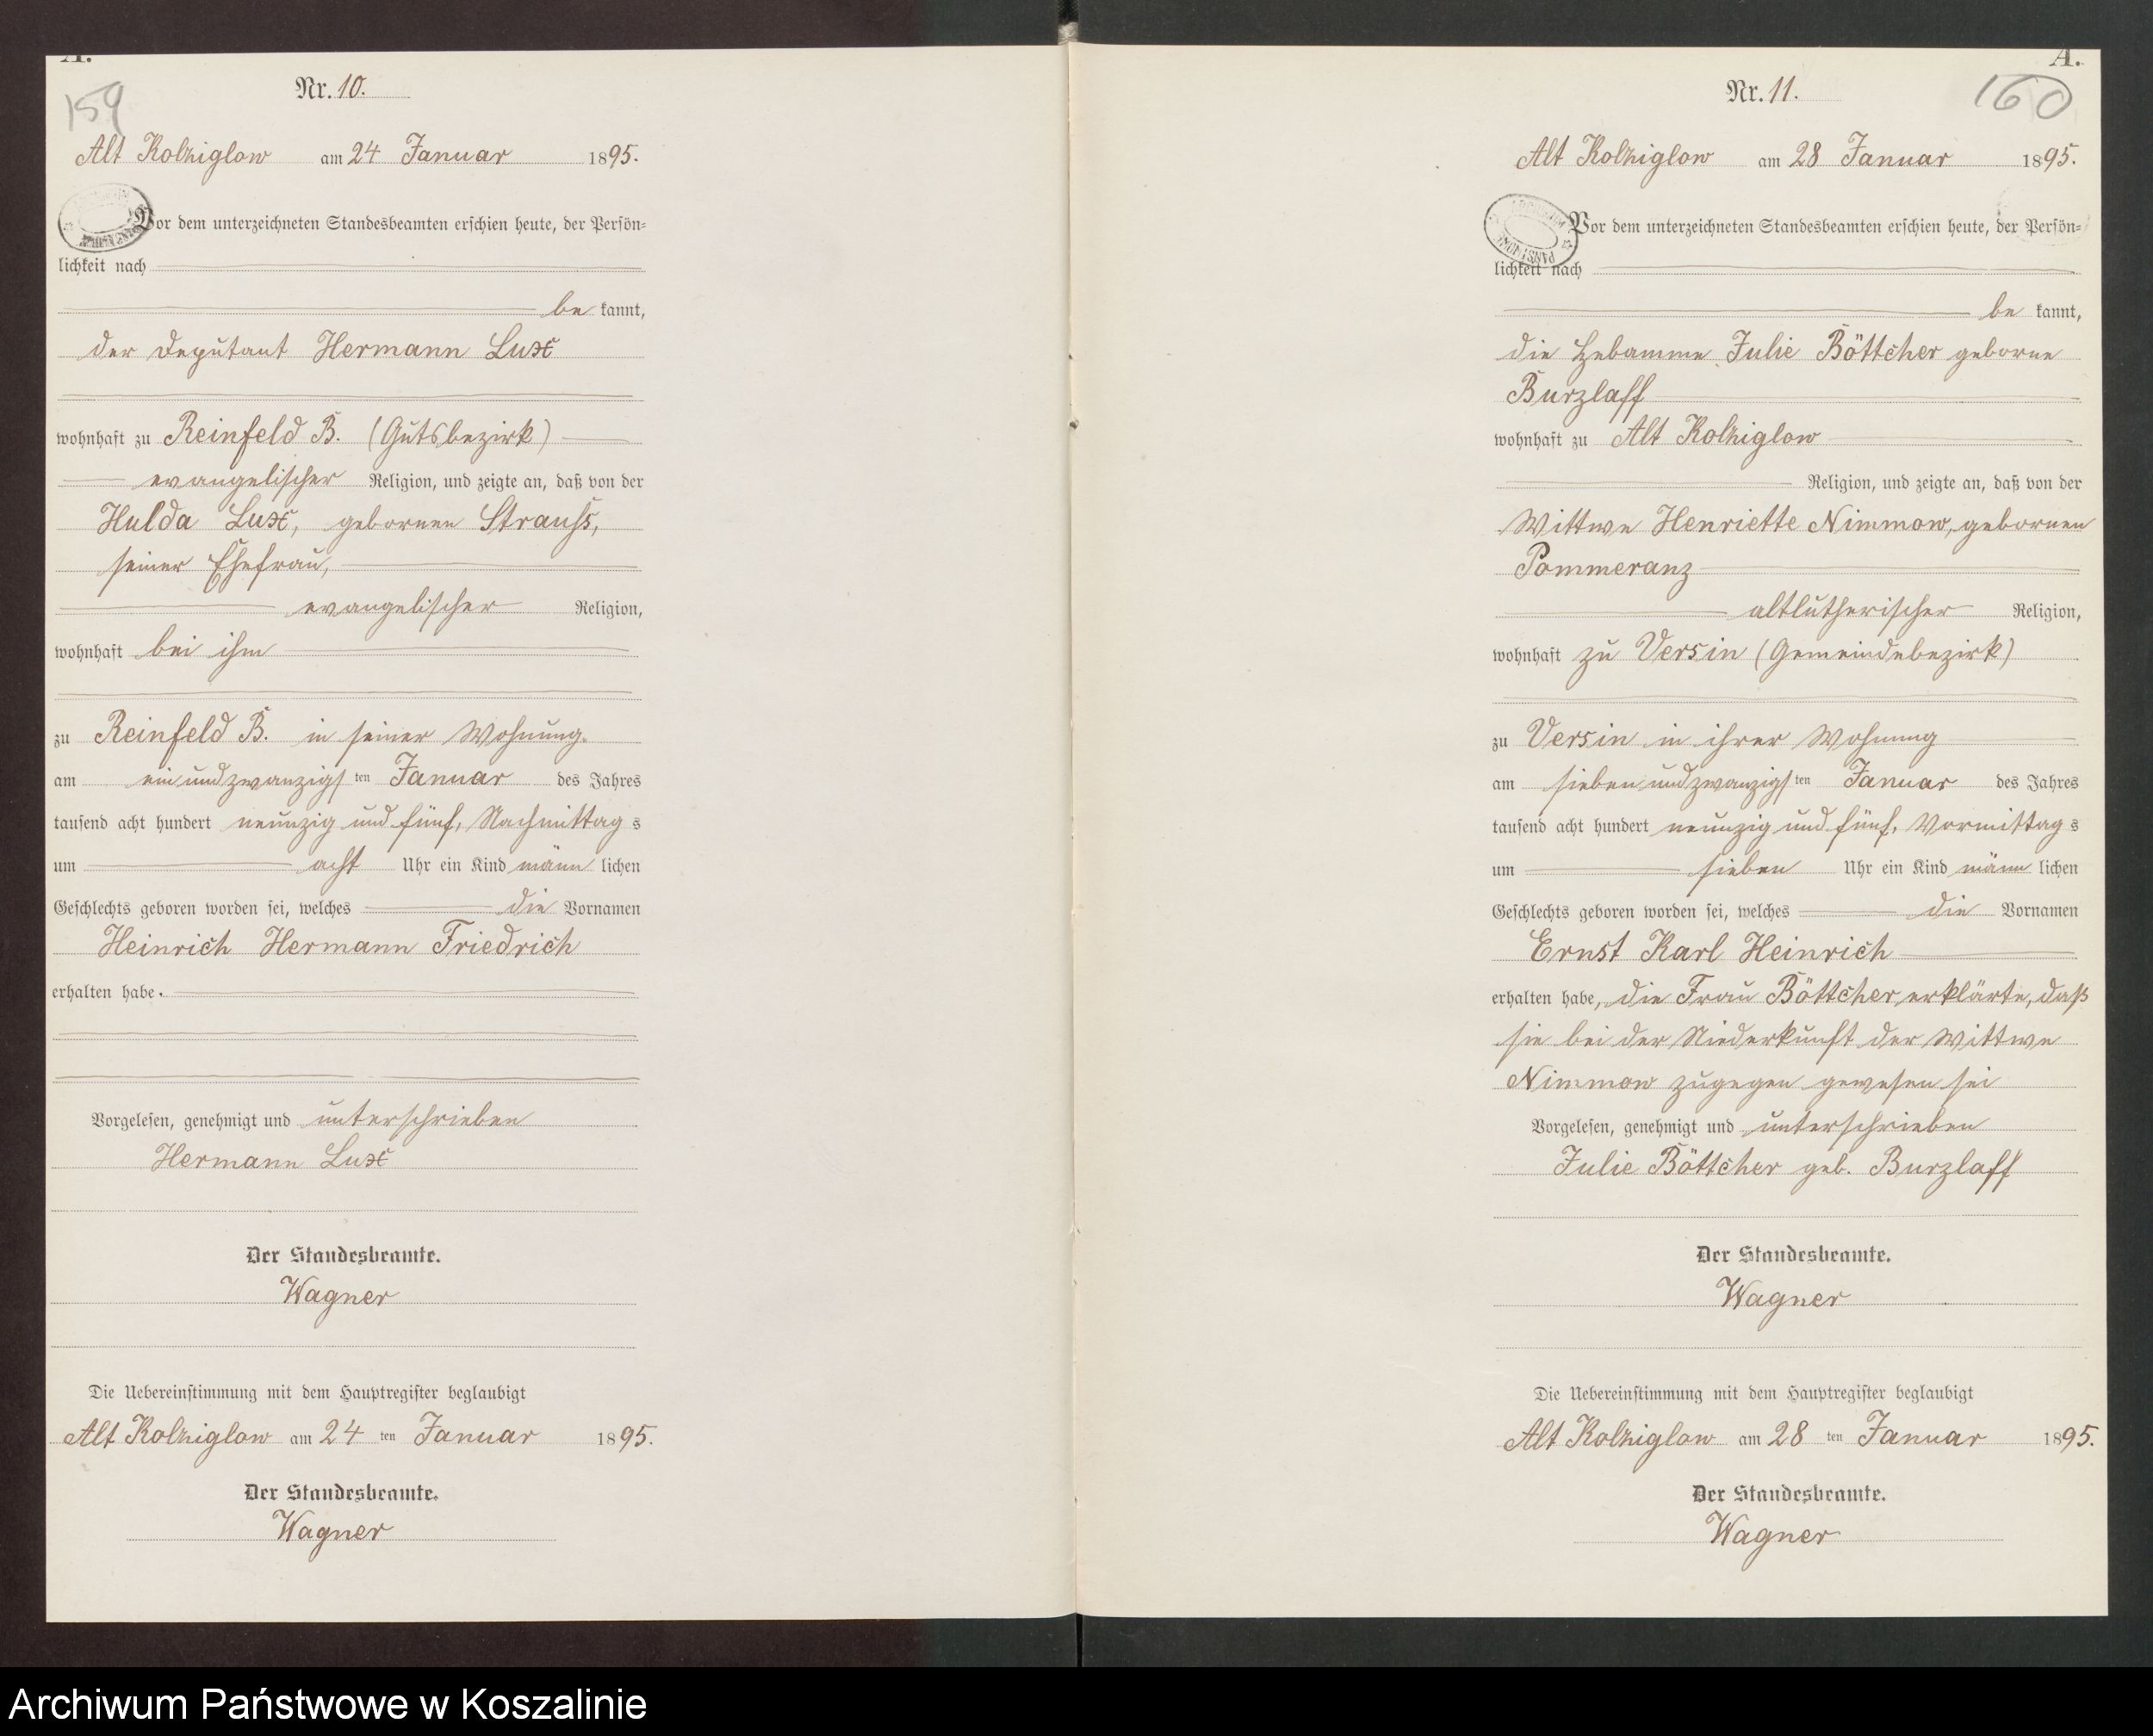 A.
159
Nr. 10.
Alt Kolziglow am 24 Januar 1895.
Vor dem unterzeichneten Standesbeamten erschien heute, der Persön=
lichkeit nach
be kannt,
der Deputant Hermann Lux
wohnhaft zu Reinfeld B. (Gutsbezirk)
evangelischer Religion, und zeigte an, daß von der
Hulda Lux, gebornen Strauss,
seiner Ehefrau,
evangelischer Religion,
wohnhaft bei ihm
zu Reinfeld B. in seiner Wohnung.
am ein und zwanzigsten Januar des Jahres
tausend acht hundert neunzig und fünf, Nachmittags
um acht Uhr ein Kind männlichen
Geschlechts geboren worden sei, welches die Vornamen
Heinrich Hermann Friedrich
erhalten habe.
Vorgelesen, genehmigt und unterschrieben
Hermann Lux
Der Standesbeamte.
Wagner
Die Uebereinstimmung mit dem Hauptregister beglaubigt
Alt Kolziglow am 24 ten Januar 1895.
Der Standesbeamte.
Wagner
A.
160
Nr. 11.
Alt Kolziglow am 28 Januar 1895.
Vor dem unterzeichneten Standesbeamten erschien heute, der Persön=
lichkeit nach
be kannt,
die Hebamme Julie Böttcher geborne
Burzlaff
wohnhaft zu Alt Kolziglow
Religion, und zeigte an, daß von der
Wittwe Henriette Nimmow, gebornen
Pommeranz
altlutherischer Religion,
wohnhaft zu Versin (Gemeindebezirk)
zu Versin in ihrer Wohnung
am sieben und zwanzigsten Januar des Jahres
tausend acht hundert neunzig und fünf, Vormittags
um sieben Uhr ein Kind männlichen
Geschlechts geboren worden sei, welches die Vornamen
Ernst Karl Heinrich
erhalten habe, die Frau Böttcher, erklärte, daß
sie bei der Niederkunft der Wittwe
Nimmow zugegen gewesen sei
Vorgelesen, genehmigt und unterschrieben
Julie Böttcher geb. Burzlaff
Der Standesbeamte.
Wagner
Die Uebereinstimmung mit dem Hauptregister beglaubigt
Alt Kolziglow am 28 ten Januar 1895.
Der Standesbeamte.
Wagner
Archiwum Państwowe w Koszalinie